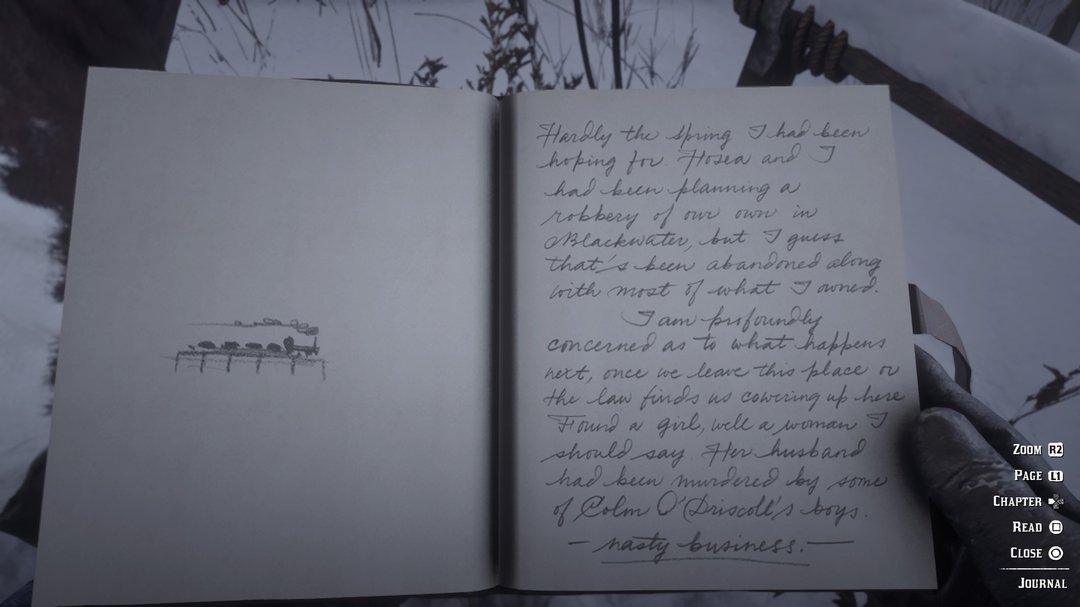 Hardly the spring I had been
hoping for Hosea and I
had been planning a
robbery of our own in
Blackwater, but I guess
that's been abandoned along
with most of what I owned.
I am profoundly
concerned as to what happens
next, once we leave this place or
the law finds us cowering up here
Found a girl, well a woman I
should say. Her husband
had been murdered by some
of Colm O'Driscoll's boys.
— nasty business. —
ZOOM R2
PAGE L1
CHAPTER
READ
CLOSE
JOURNAL